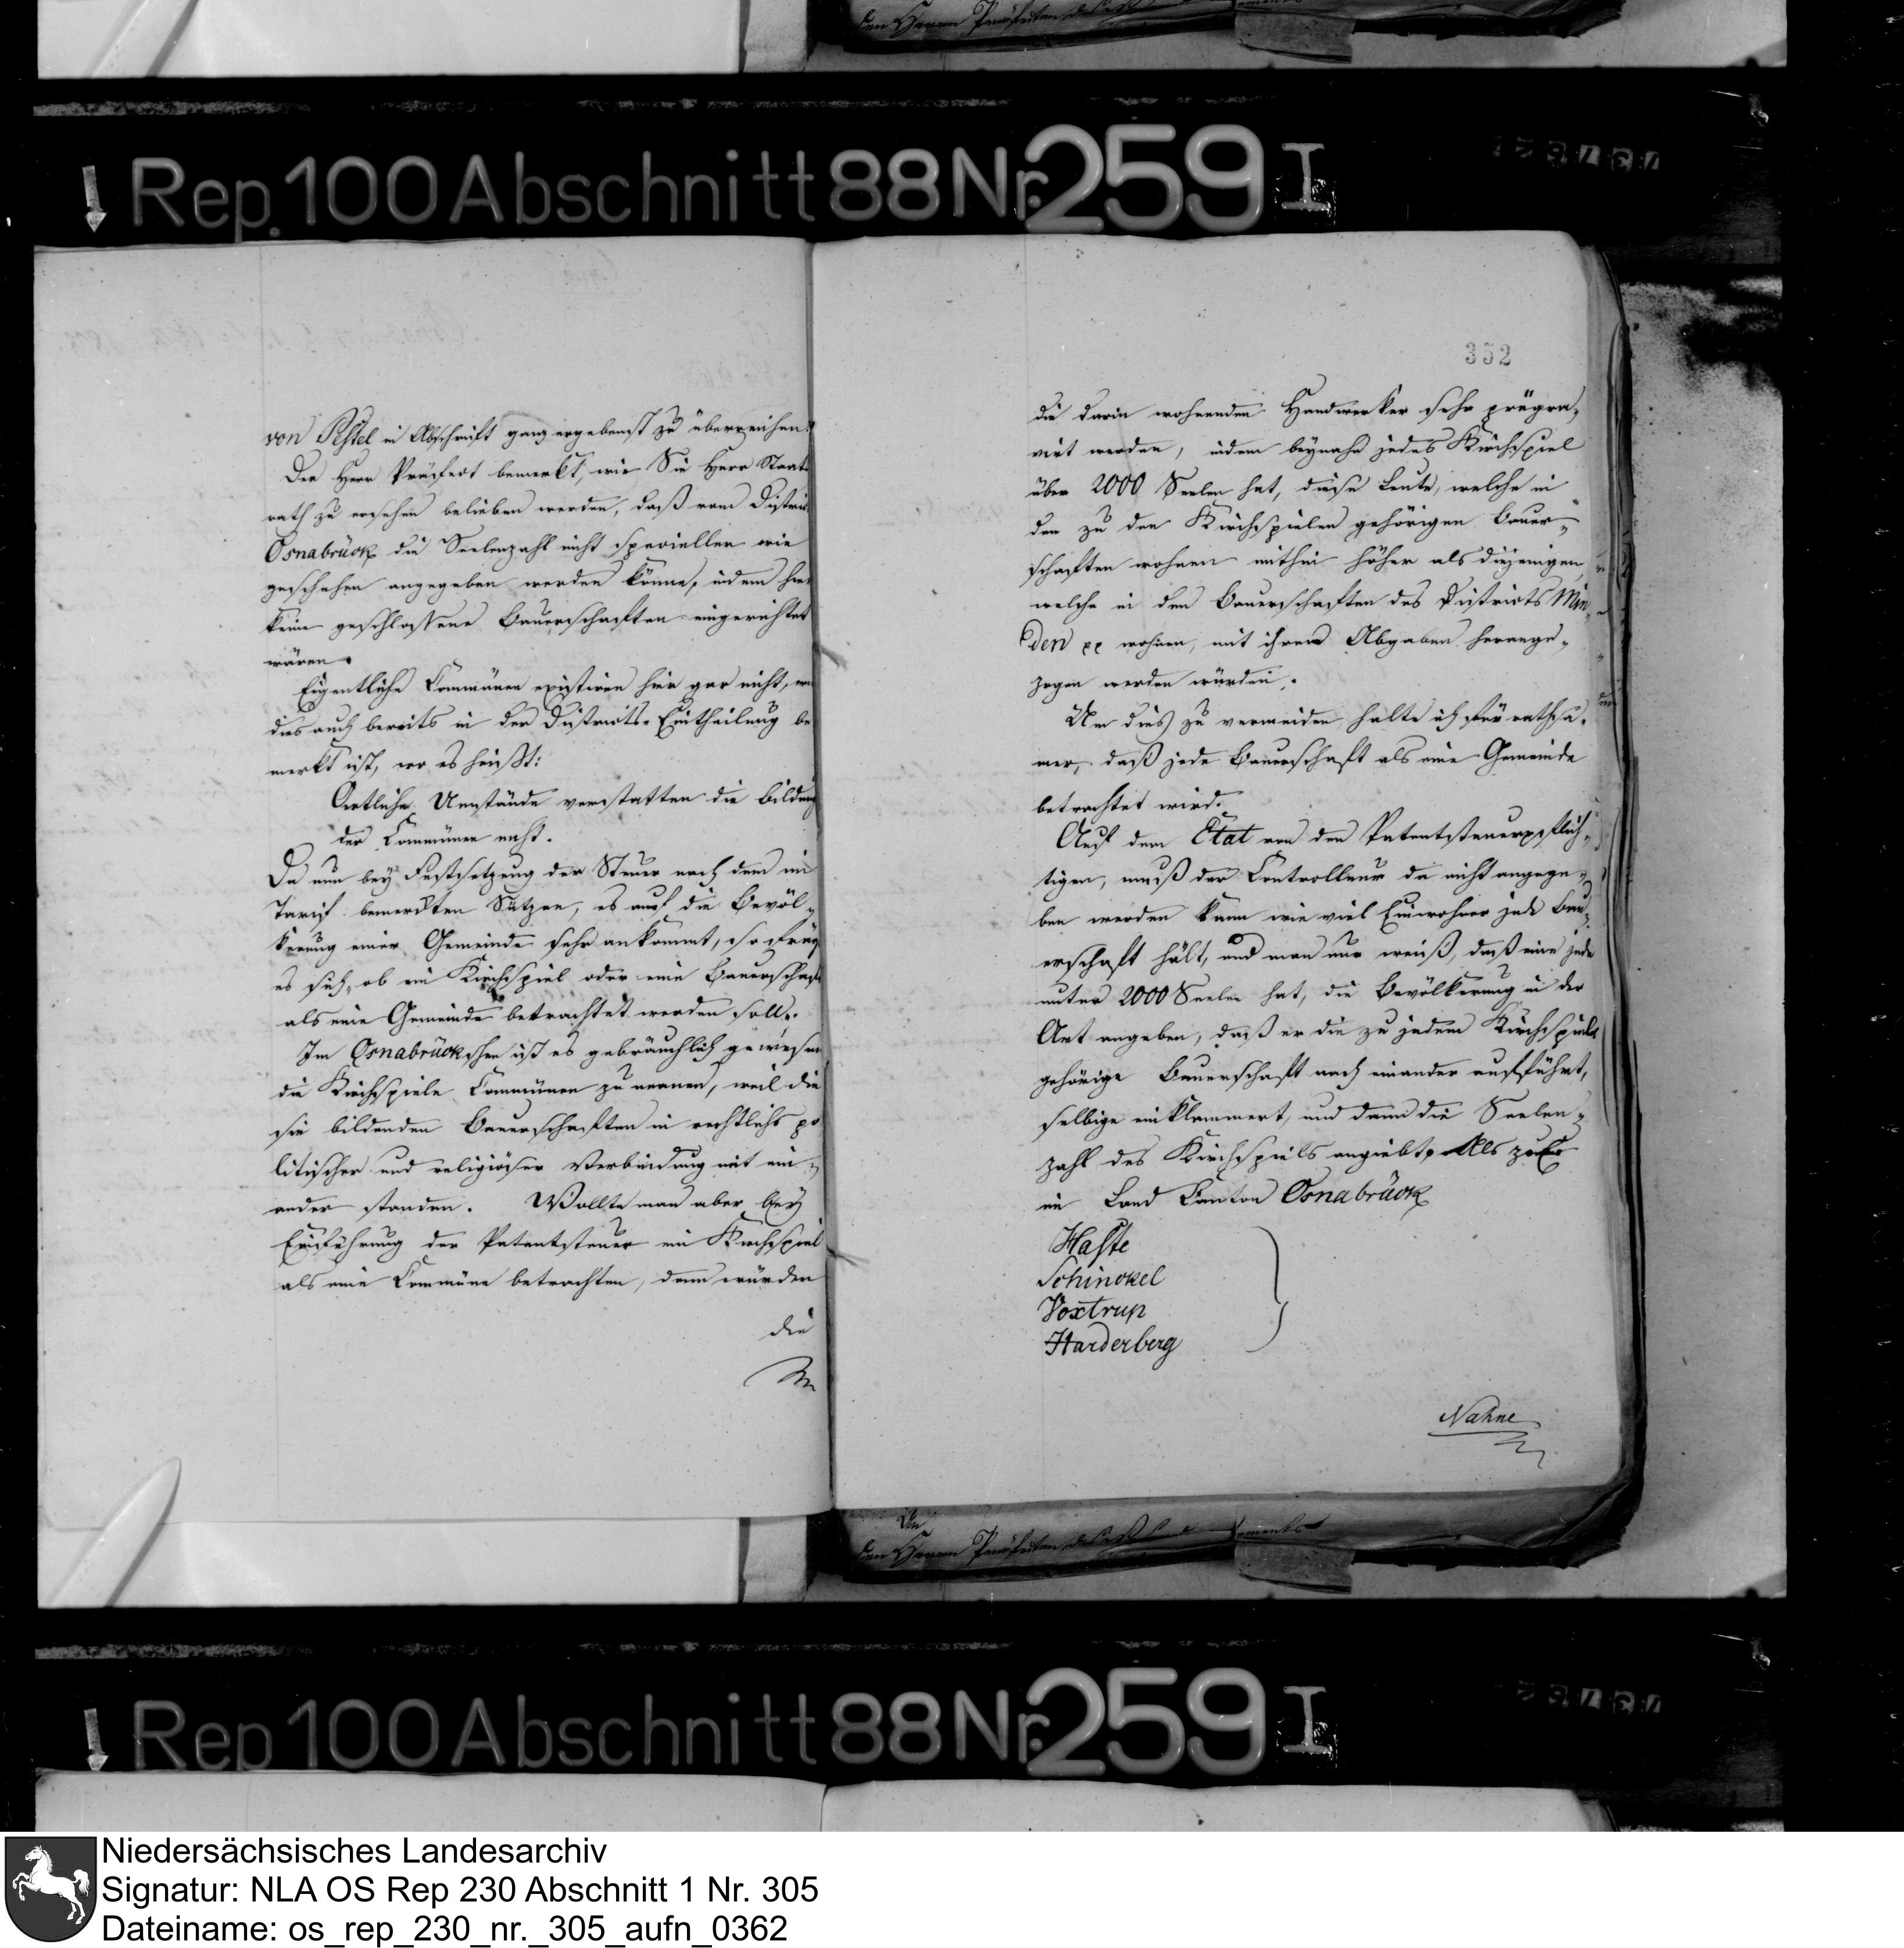 den Herrn Präfecten des
Rep. 100 Abschnitt 88 Nr. 259 I
von Pestel in Abschrift ganz ergebenst zu überreichen.
Der Herr Präfect bemerkt, wie Sie Herr Staats
rath zu ersehen belieben werden, daß vom District
Osnabrück die Seelenzahl nicht specieller wie
geschehen angegeben werden könne, indem hier
keine geschlossene Bauerschaften eingerichtet
wären.
Eigentliche Communen existiren hier gar nicht, wie
dies auch bereits in der Districts-Eintheilung be
merkt ist, wo es heißt:
Oertliche Umstände verstatten die Bildung
der Communen nicht.
Da nun bey Festsetzung der Steuer nach dem im
Tarif bemerkten Sätzen, es auf die Bevöl-
kerung einer Gemeinde sehr ankommt, so frägt
es sich, ob ein Kirchspiel oder eine Bauerschaft
als eine Gemeinde betrachtet werden soll.
Im Osnabrückschen ist es gebräuchlich gewesen
die Kirchspiele Communen zu nennen, weil die
sie bildenden Bauerschaften in rechtlicher po
litischer und religiöser Verbindung mit ein-
ander standen. Wollte man aber bey
Einführung der Patentsteuer ein Kirchspiel
als eine Commüne betrachten, dann würden
die
352
die darin wohnenden Handwerker sehr prägra-
virt werden, indem beynahe jedes Kirchspiel
über 2000 Seelen hat, diese Leute, welche in
den zu den Kirchspielen gehörigen Bauer-
schaften wohnen mithin höher als diejenigen
welche in den Bauerschaften des Districts Min-
den pp wohnen, mit ihren Abgaben herange-
zogen werden würden.
Um dies zu vermeiden halte ich für rathsa-
mer, daß jede Bauerschaft als eine Gemeinde
betrachtet wird.
Auf dem Etat von den Patentsteuerpflich-
tigen, muß der Controlleur da nicht angege-
ben werden kann wie viel Einwohner jede Bau-
erschaft hält, und man nur weiß, daß eine jede
unter 2000 Seelen hat, die Bevölkerung in der
Art angeben, daß er die zu jedem Kirchspiele
gehörige Bauerschaft nach einander aufführt,
selbige einklammert, und dann die Seelen-
zahl des Kirchspiels angiebt. Als z. E.
im Land Canton Osnabrück
Haste
Schinckel
Voxtrup
Harderberg
Nahne
An
den Herrn Präfecten des
Rep 100 Abschnitt 88 Nr. 259 I
Niedersächsisches Landesarchiv
Signatur: NLA OS Rep 230 Abschnitt 1 Nr. 305
Dateiname: os_rep_230_nr._305_aufn_0362